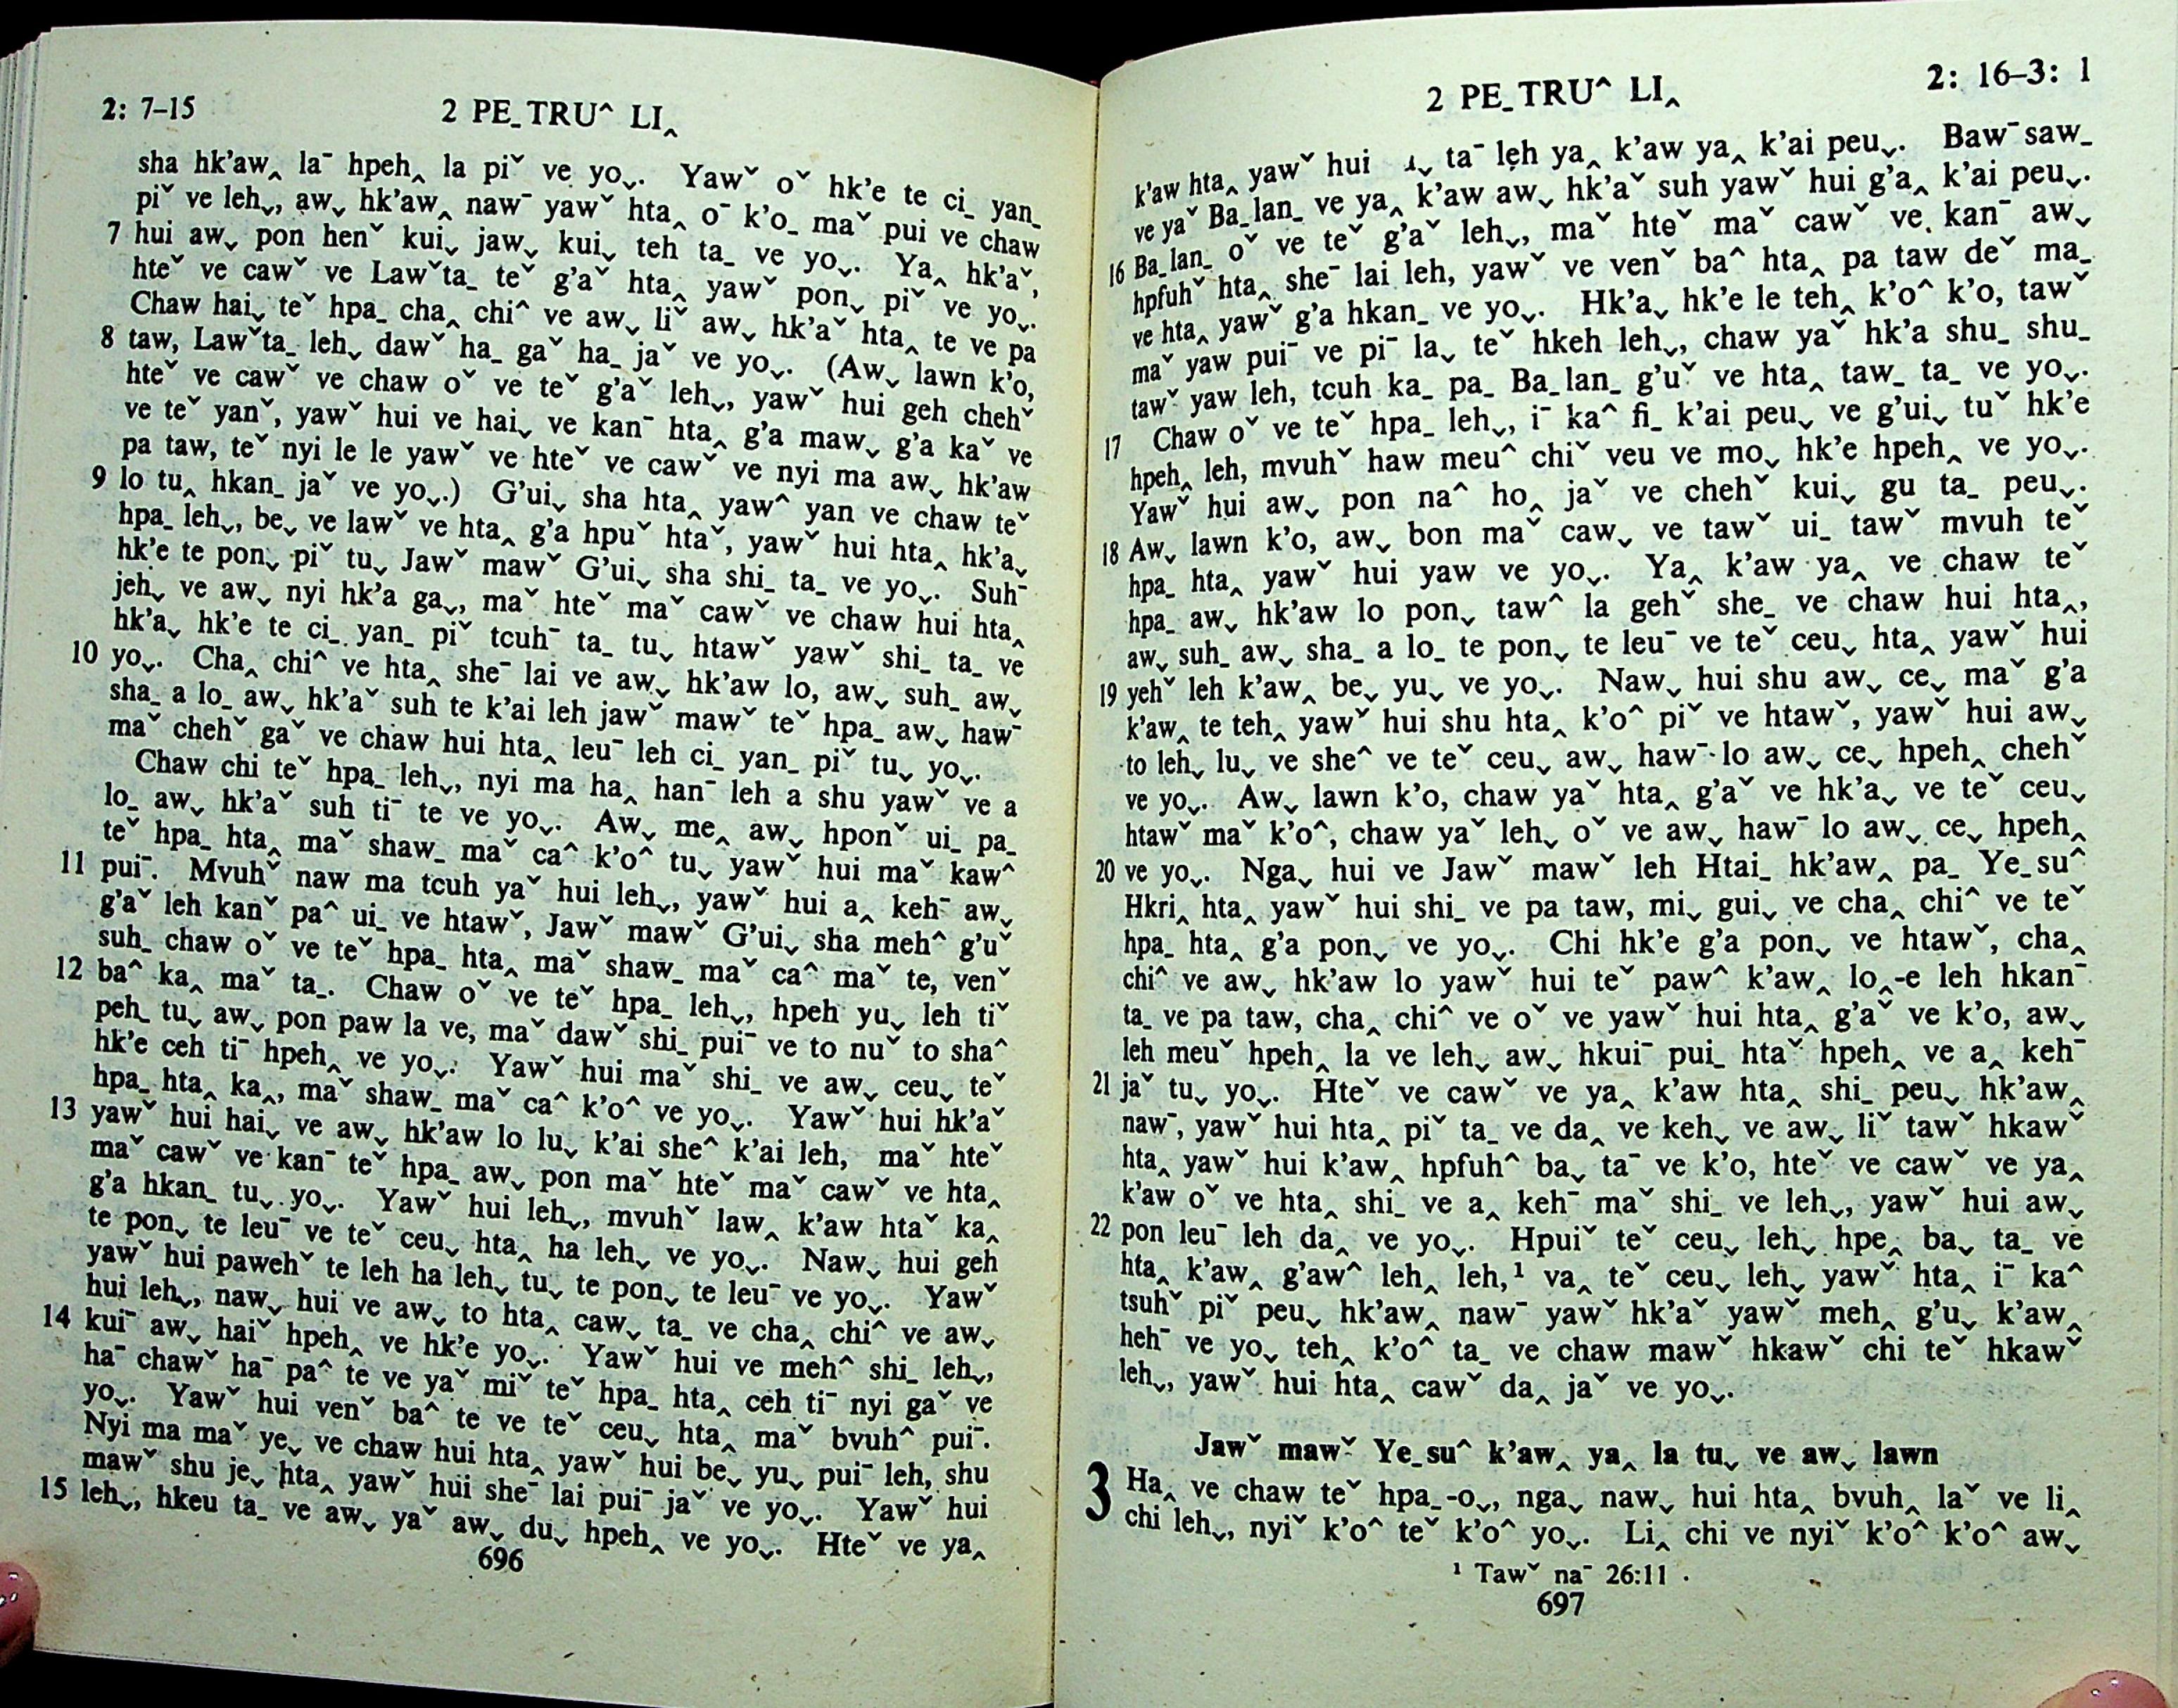 2: 7–15
2 PE_TRU^ LI‸
sha hk'aw‸ laˉ hpeh‸ la piˇ ve yoˬ. Yawˇ oˇ hk'e te ci_ yan_
piˇ ve lehˬ, awˬ hk'aw‸ nawˉ yawˇ hta‸ oˉ k'o_ maˇ pui ve chaw
7 hui awˬ pon henˇ kuiˬ jawˬ kuiˬ teh ta_ ve yoˬ. Ya‸ hk'aˇ,
hteˇ ve cawˇ ve Lawˇta_ teˇ g'aˇ hta‸ yawˇ ponˬ piˇ ve yoˬ.
Chaw haiˬ teˇ hpa_ cha‸ chi^ ve awˬ liˇ awˬ hk'aˇ hta‸ te ve pa
8 taw, Lawˇta_ lehˬ dawˇ ha_ gaˇ ha_ jaˇ ve yoˬ. (Awˬ lawn k'o,
hteˇ ve cawˇ ve chaw oˇ ve teˇ g'aˇ lehˬ, yawˇ hui geh chehˇ
ve teˇ yanˇ, yawˇ hui ve haiˬ ve kanˉ hta‸ g'a mawˬ g'a kaˇ ve
pa taw, teˇ nyi le le yawˇ ve hteˇ ve cawˇ ve nyi ma awˬ hk'aw
9 lo tu‸ hkan_ jaˇ ve yoˬ.) G'uiˬ sha hta‸ yaw^ yan ve chaw teˇ
hpa_ lehˬ, beˬ ve lawˇ ve hta‸ g'a hpuˇ htaˇ, yawˇ hui hta‸ hk'aˬ
hk'e te ponˬ piˇ tuˬ Jawˇ mawˇ G'uiˬ sha shi_ ta_ ve yoˬ. Suhˉ
jehˬ ve awˬ nyi hk'a gaˬ, maˇ hteˇ maˇ cawˇ ve chaw hui hta‸
hk'aˬ hk'e te ci_ yan_ piˇ tcuhˉ ta_ tuˬ htawˇ yawˇ shi_ ta_ ve
10 yoˬ. Cha‸ chi^ ve hta‸ sheˉ lai ve awˬ hk'aw lo, awˬ suh_ awˬ
sha_ a lo_ awˬ hk'aˇ suh te k'ai leh jawˇ mawˇ teˇ hpa_ awˬ hawˉ
maˇ chehˇ gaˇ ve chaw hui hta‸ leuˉ leh ci_ yan_ piˇ tuˬ yoˬ.
Chaw chi teˇ hpa_ lehˬ, nyi ma ha‸ hanˉ leh a shu yawˇ ve a
lo_ awˬ hk'aˇ suh tiˉ te ve yoˬ. Awˬ me‸ awˬ hponˇ ui_ pa_
teˇ hpa_ hta‸ maˇ shaw_ maˇ ca^ k'o^ tuˬ yawˇ hui maˇ kaw^
11 puiˉ. Mvuhˇ naw ma tcuh yaˇ hui lehˬ, yawˇ hui a‸ kehˉ awˬ
g'aˇ leh kanˇ pa^ ui_ ve htawˇ, Jawˇ mawˇ G'uiˬ sha meh^ g'uˇ
suh_ chaw oˇ ve teˇ hpa_ hta‸ maˇ shaw_ maˇ ca^ maˇ te, venˇ
12 ba^ ka‸ maˇ ta_. Chaw oˇ ve teˇ hpa_ lehˬ, hpeh yuˬ leh tiˇ
peh_ tuˬ awˬ pon paw la ve, maˇ dawˇ shi_ puiˉ ve to nuˇ to sha^
hk'e ceh tiˉ hpeh‸ ve yoˬ. Yawˇ hui maˇ shi_ ve awˬ ceuˬ teˇ
hpa_ hta‸ ka‸, maˇ shaw_ maˇ ca^ k'o^ ve yoˬ. Yawˇ hui hk'aˇ
13 yawˇ hui haiˬ ve awˬ hk'aw lo luˬ k'ai she^ k'ai leh, maˇ hteˇ
maˇ cawˇ ve kanˉ teˇ hpa_ awˬ pon maˇ hteˇ maˇ cawˇ ve hta‸
g'a hkan_ tuˬ yoˬ. Yawˇ hui lehˬ, mvuhˇ law‸ k'aw htaˇ ka‸
te ponˬ te leuˉ ve teˇ ceuˬ hta‸ ha lehˬ ve yoˬ. Nawˬ hui geh
yawˇ hui pawehˇ te leh ha lehˬ tuˬ te ponˬ te leuˉ ve yoˬ. Yawˇ
hui lehˬ, nawˬ hui ve awˬ to hta‸ cawˬ ta_ ve cha‸ chi^ ve awˬ
14 kuiˉ awˬ haiˇ hpeh‸ ve hk'e yoˬ. Yawˇ hui ve meh^ shi_ lehˬ,
haˉ chawˇ haˉ pa^ te ve yaˇ miˇ teˇ hpa_ hta‸ ceh tiˉ nyi gaˇ ve
yoˬ. Yawˇ hui venˇ ba^ te ve teˇ ceuˬ hta‸ maˇ bvuh^ puiˉ.
Nyi ma maˇ yeˬ ve chaw hui hta‸ yawˇ hui beˬ yuˬ puiˉ leh, shu
mawˇ shu jeˬ hta‸ yawˇ hui sheˉ lai puiˉ jaˇ ve yoˬ. Yawˇ hui
15 lehˬ, hkeu ta_ ve awˬ yaˇ awˬ duˬ hpeh‸ ve yoˬ. Hteˇ ve ya‸
696
2 PE_TRU^ LI‸
2: 16–3: 1
k'aw hta‸ yawˇ hui taˉ leh ya‸ k'aw ya‸ k'ai peuˬ. Bawˉsaw_
ve yaˇ Ba_lan_ ve ya‸ k'aw awˬ hk'aˇ suh yawˇ hui g'a‸ k'ai peuˬ.
16 Ba_lan_ oˇ ve teˇ g'aˇ lehˬ, maˇ hteˇ maˇ cawˇ ve kanˉ awˬ
hpfuhˇ hta‸ sheˉ lai leh, yawˇ ve venˇ ba^ hta‸ pa taw deˇ ma_
ve hta‸ yawˇ g'a hkan_ ve yoˬ. Hk'aˬ hk'e le teh‸ k'o^ k'o, tawˇ
maˇ yaw puiˉ ve piˉ laˬ teˇ hkeh lehˬ, chaw yaˇ hk'a shu_ shu_
tawˇ yaw leh, tcuh ka_ pa_ Ba_lan_ g'uˇ ve hta‸ taw_ ta_ ve yoˬ.
17 Chaw oˇ ve teˇ hpa_ lehˬ, iˉ ka^ fi_ k'ai peuˬ ve g'uiˬ tuˇ hk'e
hpeh‸ leh, mvuhˇ haw meu^ chiˇ veu ve moˬ hk'e hpeh‸ ve yoˬ.
Yawˇ hui awˬ pon na^ ho‸ jaˇ ve chehˇ kuiˬ gu ta_ peuˬ.
18 Awˬ lawn k'o, awˬ bon maˇ cawˬ ve tawˇ ui_ tawˇ mvuh teˇ
hpa_ hta‸ yawˇ hui yaw ve yoˬ. Ya‸ k'aw ya‸ ve chaw teˇ
hpa_ awˬ hk'aw lo ponˬ taw^ la gehˇ she_ ve chaw hui hta‸,
awˬ suh_ awˬ sha_ a lo_ te ponˬ te leuˉ ve teˇ ceuˬ hta‸ yawˇ hui
19 yehˇ leh k'aw‸ beˬ yuˬ ve yoˬ. Nawˬ hui shu awˬ ceˬ maˇ g'a
k'aw‸ te teh‸ yawˇ hui shu hta‸ k'o^ piˇ ve htawˇ, yawˇ hui awˬ
to lehˬ luˬ ve she^ ve teˇ ceuˬ awˬ hawˉ lo awˬ ceˬ hpeh‸ chehˇ
ve yoˬ. Awˬ lawn k'o, chaw yaˇ hta‸ g'aˇ ve hk'aˬ ve teˇ ceuˬ
htawˇ maˇ k'o^, chaw yaˇ lehˬ oˇ ve awˬ hawˉ lo awˬ ceˬ hpeh‸
20 ve yoˬ. Ngaˬ hui ve Jawˇ mawˇ leh Htai_ hk'aw‸ pa_ Ye_su^
Hkri‸ hta‸ yawˇ hui shi_ ve pa taw, miˬ guiˬ ve cha‸ chi^ ve teˇ
hpa_ hta‸ g'a ponˬ ve yoˬ. Chi hk'e g'a ponˬ ve htawˇ, cha‸
chi^ ve awˬ hk'aw lo yawˇ hui teˇ paw^ k'aw‸ lo‸-e leh hkanˉ
ta_ ve pa taw, cha‸ chi^ ve oˇ ve yawˇ hui hta‸ g'aˇ ve k'o, awˬ
leh meuˇ hpeh‸ la ve lehˬ awˬ hkuiˉ pui_ htaˇ hpeh‸ ve a‸ kehˉ
21 jaˇ tuˬ yoˬ. Hteˇ ve cawˇ ve ya‸ k'aw hta‸ shi_ peuˬ hk'aw‸
nawˉ, yawˇ hui hta‸ piˇ ta_ ve da‸ ve kehˬ ve awˬ liˇ tawˇ hkawˇ
hta‸ yawˇ hui k'aw‸ hpfuh^ baˬ taˉ ve k'o, hteˇ ve cawˇ ve ya‸
k'aw oˇ ve hta‸ shi_ ve a‸ kehˉ maˇ shi_ ve lehˬ, yawˇ hui awˬ
22 pon leuˉ leh da‸ ve yoˬ. Hpuiˇ teˇ ceuˬ lehˬ hpe‸ baˬ ta_ ve
hta‸ k'aw‸ g'aw^ leh‸ leh,¹ va‸ teˇ ceuˬ lehˬ yawˇ hta‸ iˉ ka^
tsuhˇ piˇ peuˬ hk'aw‸ nawˉ yawˇ hk'aˇ yawˇ meh‸ g'uˬ k'aw‸
hehˉ ve yoˬ teh‸ k'o^ ta_ ve chaw mawˇ hkawˇ chi teˇ hkawˇ
lehˬ, yawˇ hui hta‸ cawˇ da‸ jaˇ ve yoˬ.
Jawˇ mawˇ Ye_su^ k'aw‸ ya‸ la tuˬ ve awˬ lawn
3 Ha‸ ve chaw teˇ hpa_-oˬ, ngaˬ nawˬ hui hta‸ bvuh‸ laˇ ve li‸
chi lehˬ, nyiˇ k'o^ teˇ k'o^ yoˬ. Li‸ chi ve nyiˇ k'o^ k'o^ awˬ
¹ Tawˇ naˉ 26:11
697